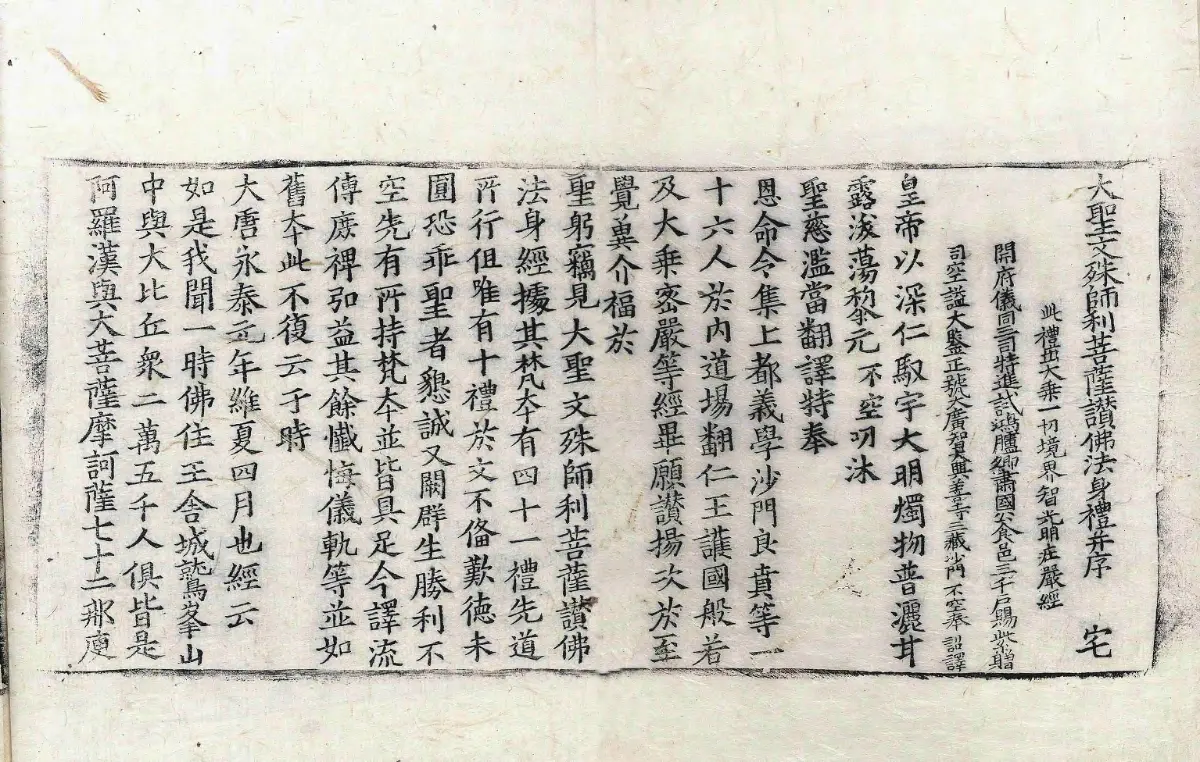 大聖文殊師利菩薩讃佛法身禮并序 宅
此禮出大乗一切境界智光明莊嚴經
開府儀同三司特進試鴻臚卿肅國公食邑三千户賜紫贈
司空謚大鑒正號大廣智大興善寺三藏沙門不空奉 詔譯
皇帝以深仁馭宇大明燭物普灑甘
露浚蕩黎元不空叨沐
聖慈濫當翻譯特奉
恩命令集上都義學沙門良賁等一
十六人於内道場翻仁王護國般若
及大乗密嚴等經畢願讃揚次於至
覺兾介福於
聖躬竊見大聖文殊師利菩薩讃佛
法身經據其梵夲有四十一禮先道
所行但唯有十禮於文不俻歎德未
圓恐乖聖者懇誠又闕群生勝利不
空先有所持梵夲並皆具足今譯流
傳庶裨弘益其餘懺悔儀軌等並如
舊夲此不復云于時
大唐永泰元年維夏四月也經云
如是我聞一時佛住王舎城鷲峯山
中與大比丘衆二萬五千人俱皆是
阿羅漢與大菩薩摩訶薩七十二那庾